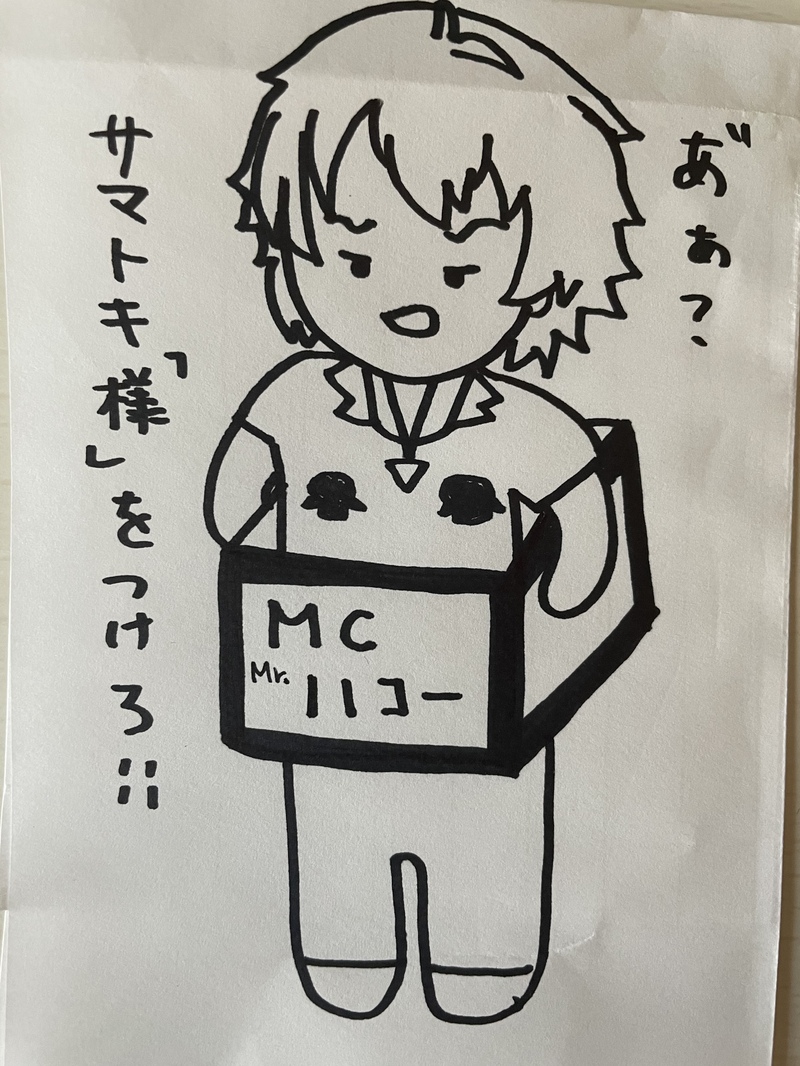 あ゛ぁ?
サマトキ「様」をつけろ!!
MC
Mr.ハコー